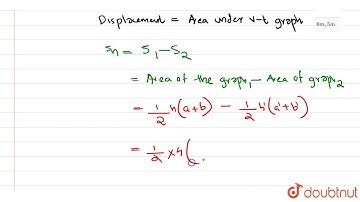 Displacement = Area under v-t graph
6m, 5m
Sn = S₁-S₂
= Area of the graph₁ - Area of graph₂
= 1/2 h(a+b) - 1/2 h'(a'+b')
= 1/2 x 4(
doubtnut